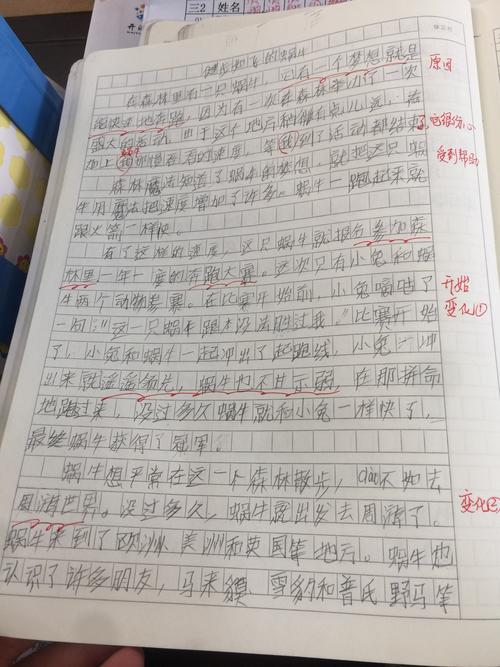 三2 姓名
健步如飞的蜗牛
在森林里有一只蜗牛，它有一个梦想就是
能快速地在跑，因为有一次在森林举办了一次
盛大的活动，由于这个地方稍微有点儿远，在
加上慢吞吞的速度，等我到了活动都结束
了，它很伤心
森林魔法知道了蜗牛的梦想，就把这只蜗
牛用魔法把速度增加了许多。蜗牛一跑起来就
跟火箭一样快。
有了这样的速度，这只蜗牛就报名参加森
林里一年一度的奔跑大赛。这次只有小兔和蜗
牛两个动物参赛。在比赛开始前，小兔嘀咕了
一句：“这一只蜗牛跟本没法胜过我。”比赛开始
了，小兔和蜗牛一起冲出了起跑线，小兔一冲
出来就遥遥领先，蜗牛也不甘示弱，在那拼命
地跑过来，没过多久蜗牛就和小兔一样快了，
最终蜗牛获得了冠军。
蜗牛想平常在这一个森林散步，还不如去
周游世界。没过多久，蜗牛就出发去周游了。
蜗牛来到了欧洲、美洲和英国等地方。蜗牛也
认识了许多朋友，马来貘、雪豹和普氏野马等
原因
受到帮助
开始
变化①
变化②